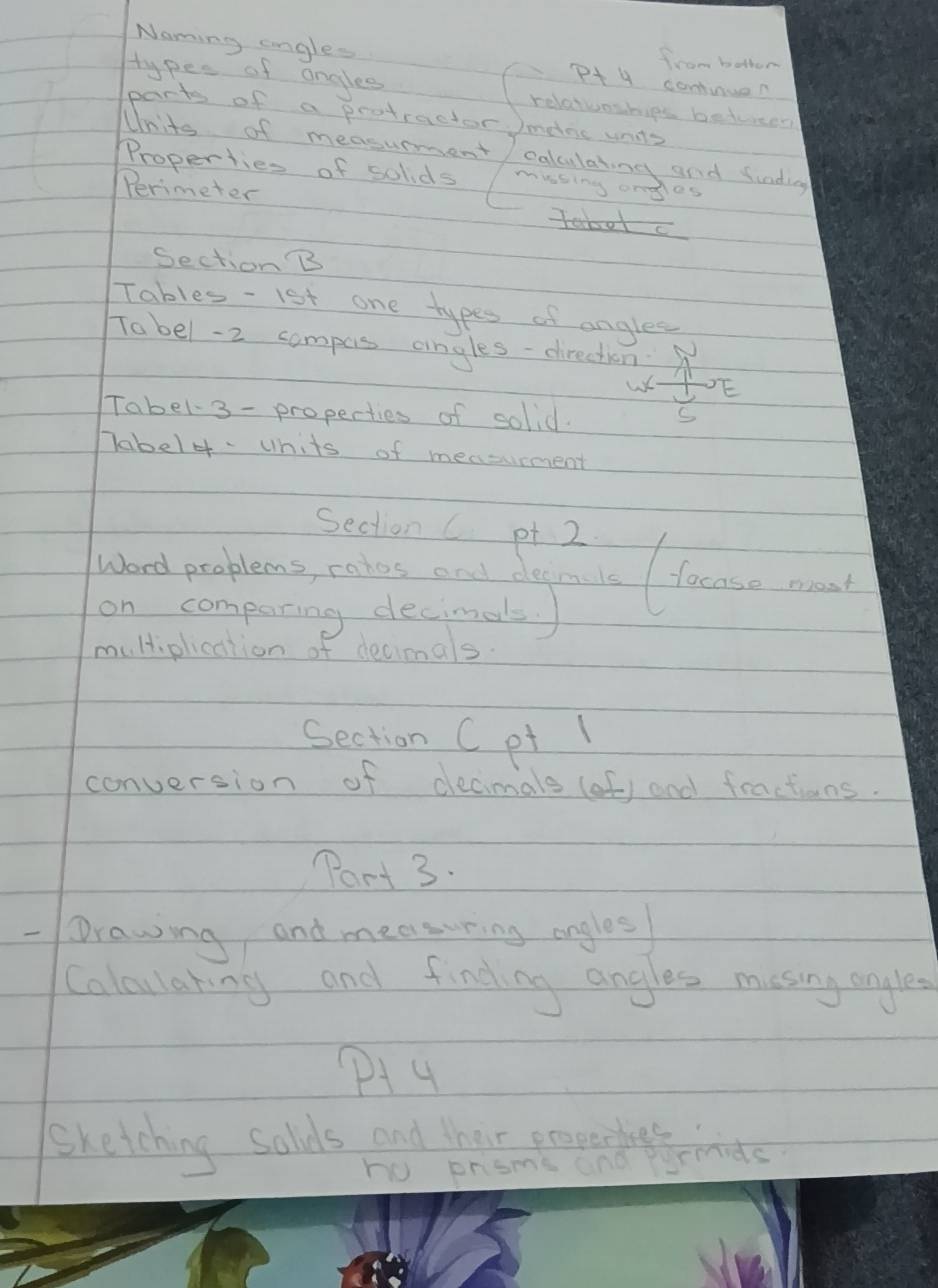 Naming angles
types of angles
parts of a protractor
Units of measurment
Properties of solids
Perimeter
from bottom
Pt 4 continues
relationships between
metric units
calculating and finding
missing angles
Tabel c
Section B
Tables - 1st one types of angles
Tabel -2 compas angles - direction.
N
W E
S
Tabel-3 - properties of solid.
Tabel 4 - units of measurment
Section C pt 2
Word problems, ratos and decimals (focase most
on comparing decimals.)
multiplication of decimals.
Section C pt 1
conversion of decimals (of) and fractions.
Part 3.
- Drawing, and measuring angles/
Calculating and finding angles missing angles
Pt 4
Sketching solids and their properties.
no prisms and pyrmids.